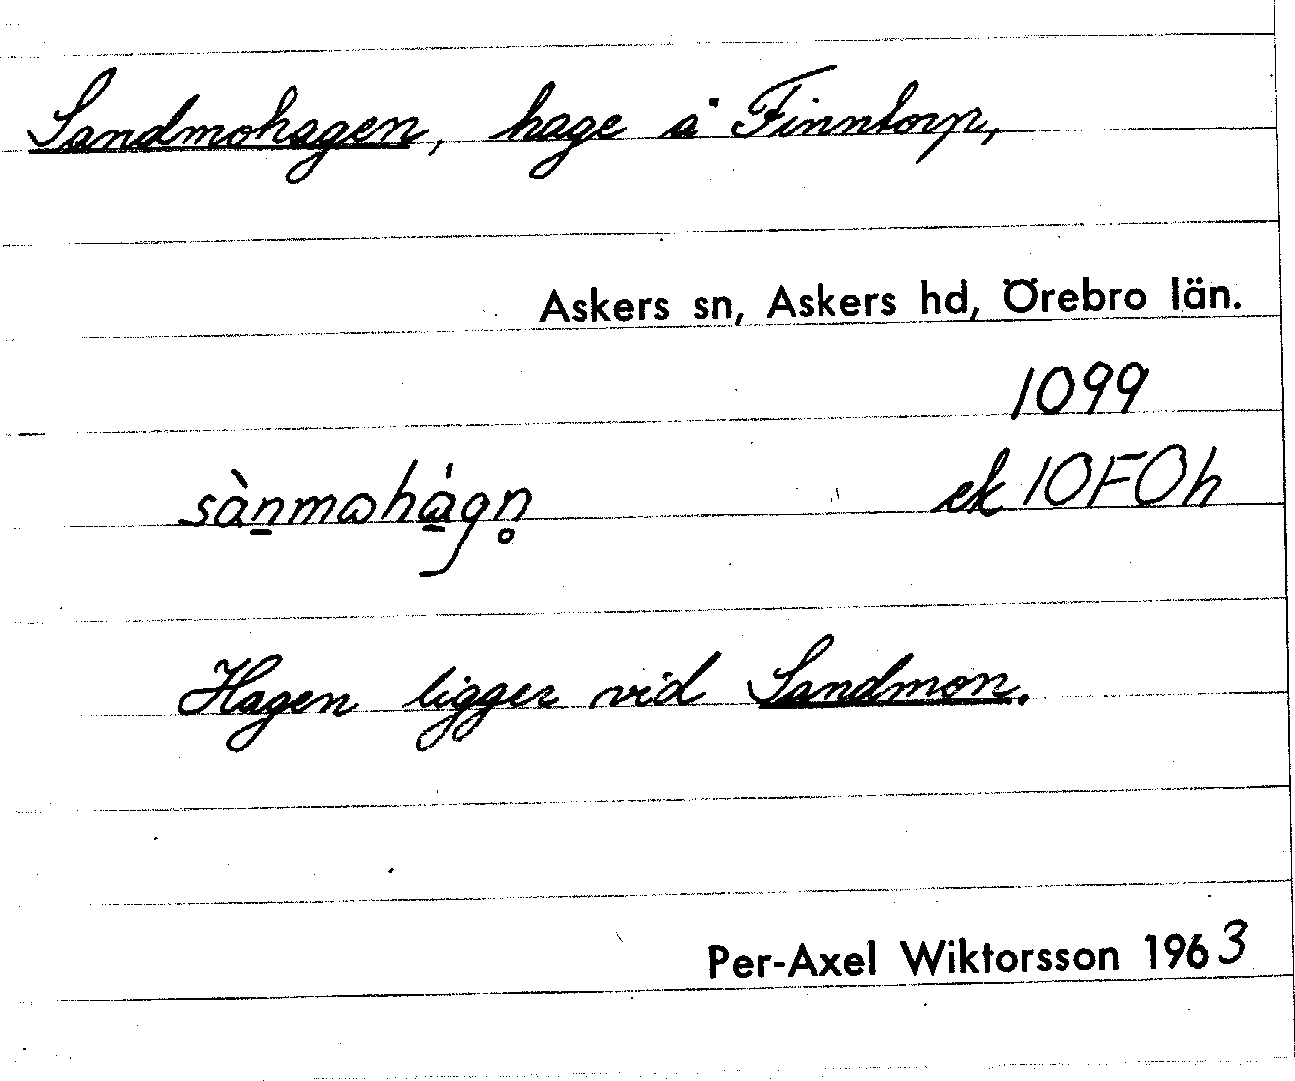 Sandmohagen, hage å Finntorp,
Askers sn, Askers hd, Örebro län.
1099
sànmωhágn̥ ek 10F0h
Hagen ligger vid Sandmon.
Per-Axel Wiktorsson 1963